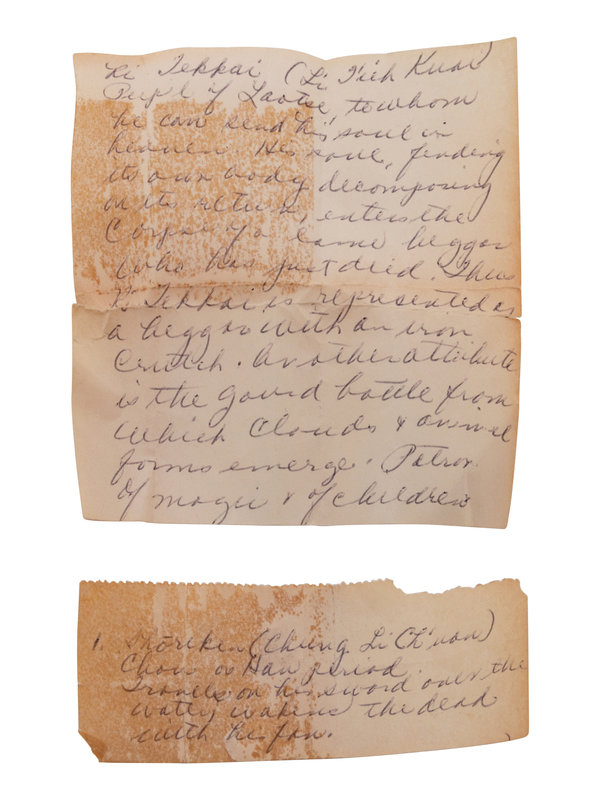 Li Tekkai (Li T'ieh Kuai)
Pupil of Laotse, to whom
he can send his soul in
heaven. His soul, finding
its own body decomposing
on its return, enters the
Corpse of a lame beggar
who has just died. Thus
Li Tekkai is represented as
a beggar with an iron
Crutch. Another attribute
is the gourd bottle from
which Clouds & animal
forms emerge. Patron
of magic & of children
1. Shoriken (Chung Li Ch'uan)
Chow or Han period.
Travels on his sword over the
water, wakens the dead
with his fan.